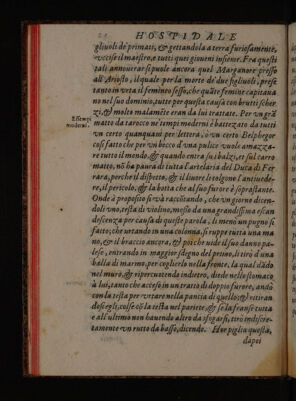 HOSPIDALE
gliuoli de primati, & gettandola a terra furiosamente,
vccise il maestro, e tutti quei giouani insieme. Fra questi
tali annouerar si puole ancora quel Marganor presso
all'Ariosto, il quale per la morte de' due figliuoli, prese
tanto in veta il feminino sesso, che quãte femine capitana
no nel suo dominio, tutte per questa causa con brutti scher
zi, & molto malamẽte eran da lui trattate. Per vn grã
Essempi
moderni.
matto da tarocco ne' tempi moderni è battezato da tutti
vn certo quanquam per lettera, ò vn certo Belphegor
cosi fatto che per vn becco d'vna pulice vuole amazza-
re tutto il mondo, & quando entra su i balzi, et sul carro
matto, nõ ha paura di tutta l'artelaria del Duca di Fer
rara, perche il dispetto, & il liuore li tolgono l'antiuede-
re, il pericolo, & la botta che al suo furore è soprastante.
Onde à proposito si và raccõtando, che vn giorno dicen-
doli vno, testa di violino, messo da vna grandissima escan
descenza per causa di queste parola, li menò un pugno sì
fatto, che vrtando in vna colonna, si ruppe tutta una ma
no, & il braccio ancora, & poi che vide il suo danno pa-
lese, entrando in maggior sdegno del primo, li tirò d'una
balla di marmo, per coglierlo nella fronte, la qual dãdo
nel muro, & ripercuttendo indietro, diede nello stomaco
à lui, tanto che acceso in un tratto di doppio furore, andò
con la testa per vrtare nella pancia di quello: & retiran
dosi egli, colse cõ la testa nel pariete, & se la franse tutta
e all'ultimo non hauendo altro da sfogarsi, tirò indiscre-
tamente vn rutto da basso, dicendo. Hor piglia questa,
dapoi